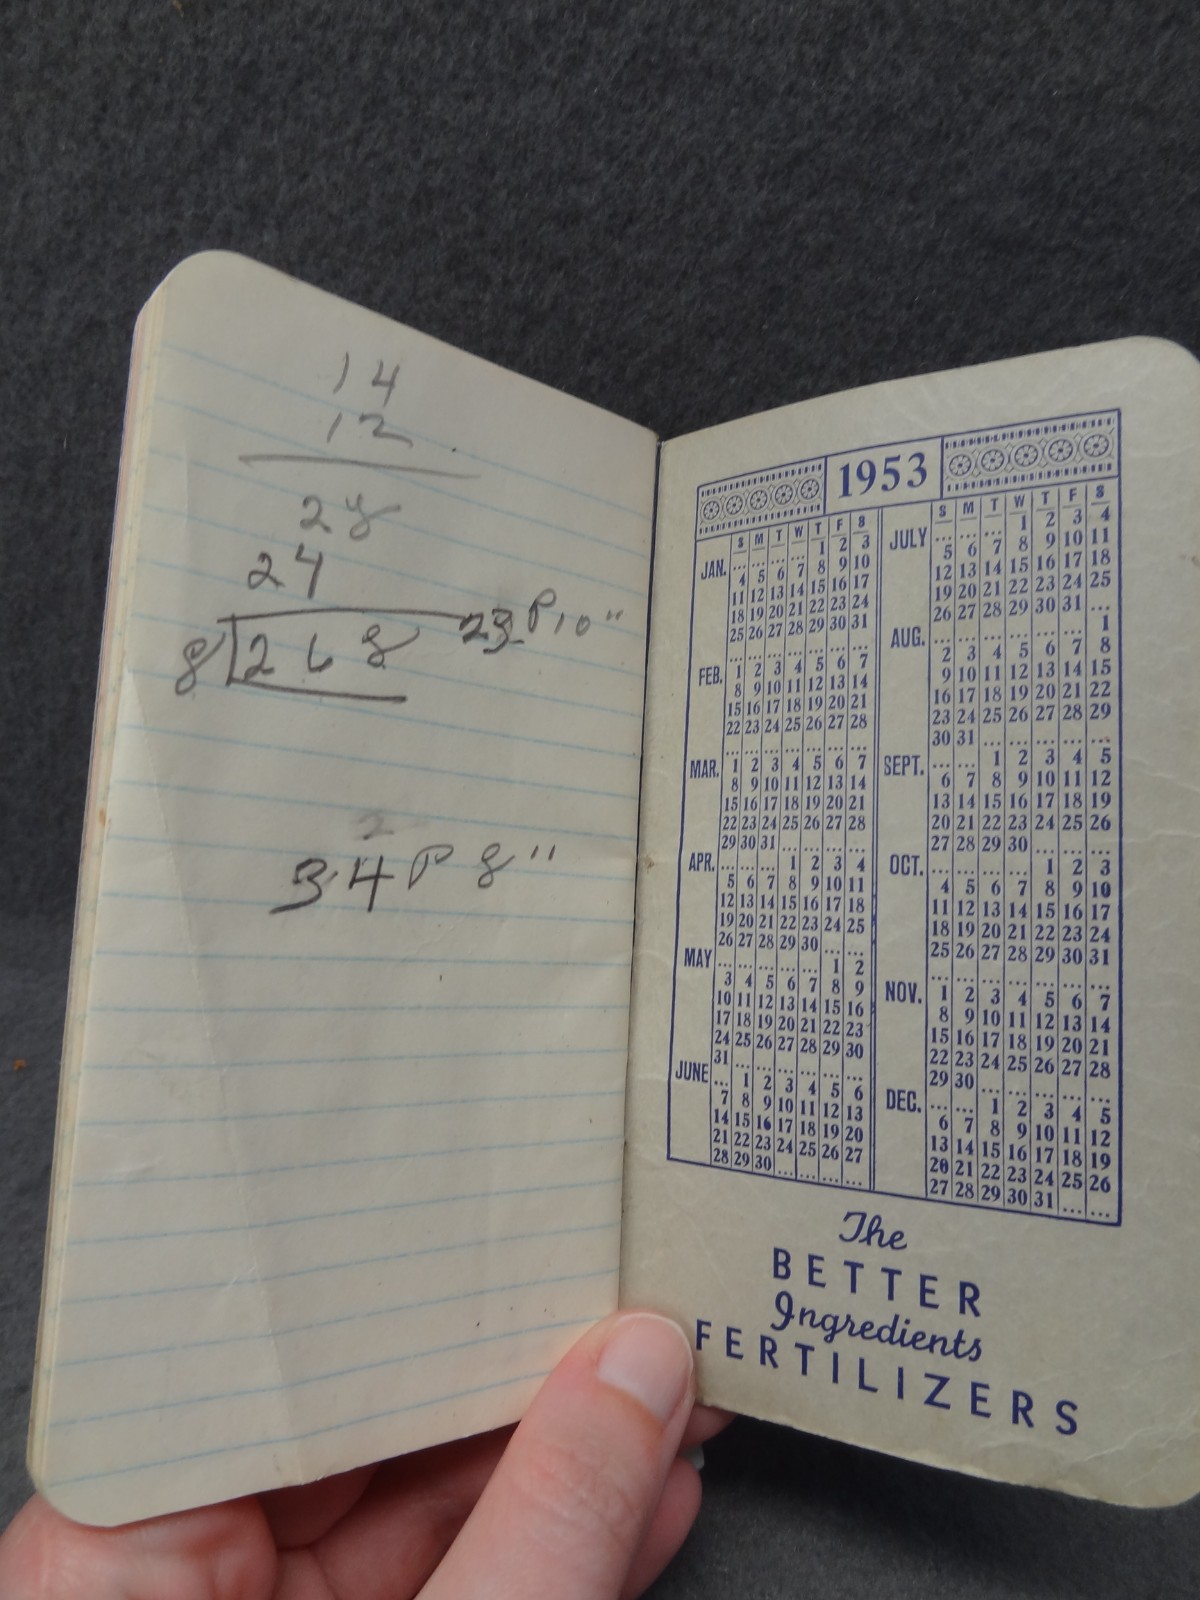 14
12
28
24
8 268 23 P 10"
2
34 P 8"
1953
S M T W T F S
JAN. ... ... ... ... 1 2 3
4 5 6 7 8 9 10
11 12 13 14 15 16 17
18 19 20 21 22 23 24
25 26 27 28 29 30 31
FEB. ... ... ... ... ... ... ...
1 2 3 4 5 6 7
8 9 10 11 12 13 14
15 16 17 18 19 20 21
22 23 24 25 26 27 28
... ... ... ... ... ... ...
MAR. 1 2 3 4 5 6 7
8 9 10 11 12 13 14
15 16 17 18 19 20 21
22 23 24 25 26 27 28
29 30 31 ... ... ... ...
APR. ... ... ... 1 2 3 4
5 6 7 8 9 10 11
12 13 14 15 16 17 18
19 20 21 22 23 24 25
26 27 28 29 30 ... ...
MAY ... ... ... ... ... 1 2
3 4 5 6 7 8 9
10 11 12 13 14 15 16
17 18 19 20 21 22 23
24 25 26 27 28 29 30
31 ... ... ... ... ... ...
JUNE ... 1 2 3 4 5 6
7 8 9 10 11 12 13
14 15 16 17 18 19 20
21 22 23 24 25 26 27
28 29 30 ... ... ... ...
S M T W T F S
JULY ... ... ... 1 2 3 4
5 6 7 8 9 10 11
12 13 14 15 16 17 18
19 20 21 22 23 24 25
26 27 28 29 30 31 ...
AUG. ... ... ... ... ... ... 1
2 3 4 5 6 7 8
9 10 11 12 13 14 15
16 17 18 19 20 21 22
23 24 25 26 27 28 29
30 31 ... ... ... ... ...
SEPT. ... ... 1 2 3 4 5
6 7 8 9 10 11 12
13 14 15 16 17 18 19
20 21 22 23 24 25 26
27 28 29 30 ... ... ...
OCT. ... ... ... ... 1 2 3
4 5 6 7 8 9 10
11 12 13 14 15 16 17
18 19 20 21 22 23 24
25 26 27 28 29 30 31
... ... ... ... ... ... ...
NOV. 1 2 3 4 5 6 7
8 9 10 11 12 13 14
15 16 17 18 19 20 21
22 23 24 25 26 27 28
29 30 ... ... ... ... ...
DEC. ... ... 1 2 3 4 5
6 7 8 9 10 11 12
13 14 15 16 17 18 19
20 21 22 23 24 25 26
27 28 29 30 31 ... ...
The
BETTER
Ingredients
FERTILIZERS